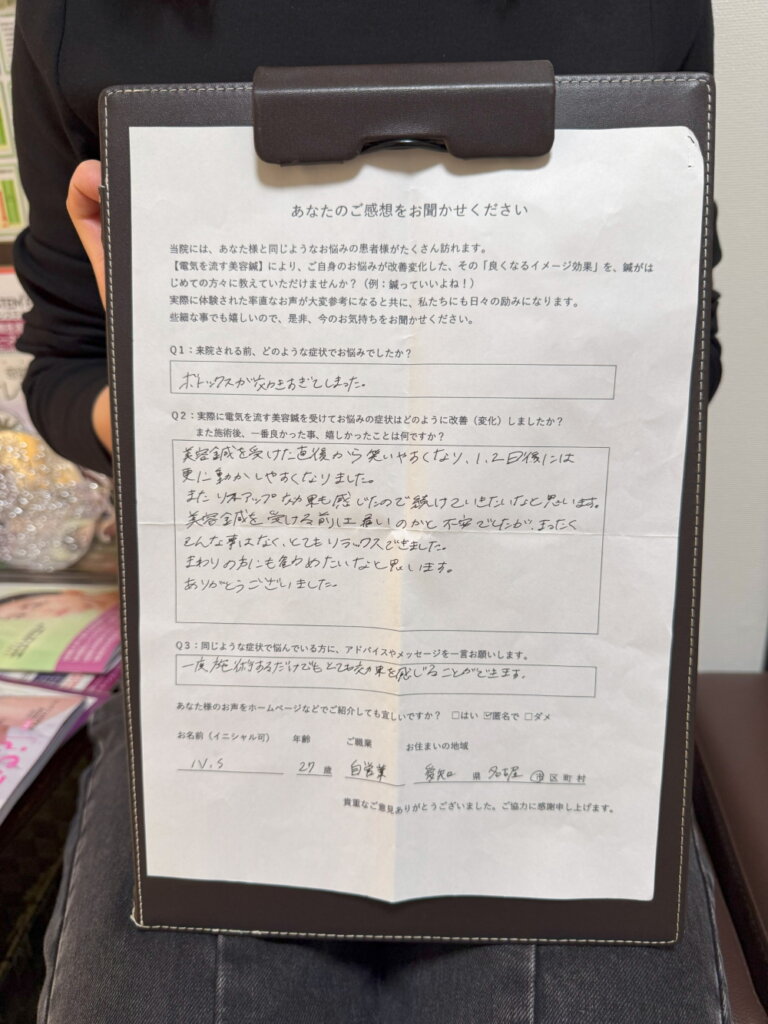 あなたのご感想をお聞かせください
当院には、あなた様と同じようなお悩みの患者様がたくさん訪れます。
【電気を流す美容鍼】により、ご自身のお悩みが改善変化した、その「良くなるイメージ効果」を、鍼がは
じめての方々に教えていただけませんか？（例：鍼っていいよね！）
実際に体験された率直なお声が大変参考になると共に、私たちにも日々の励みになります。
些細な事でも嬉しいので、是非、今のお気持ちをお聞かせください。
Q1：来院される前、どのような症状でお悩みでしたか？
ボトックスが効きすぎてしまった。
Q2：実際に電気を流す美容鍼を受けてお悩みの症状はどのように改善（変化）しましたか？
また施術後、一番良かった事、嬉しかったことは何ですか？
美容鍼を受けた直後から笑いやすくなり、1、2日後には
更に動かしやすくなりました。
また リフトアップな効果も感じたので続けていきたいなと思います。
美容鍼を受ける前は痛いのかと不安でしたが、まったく
そんな事はなく、とてもリラックスできました。
まわりの方にも勧めたいなと思います。
ありがとうございました。
Q3：同じような症状で悩んでいる方に、アドバイスやメッセージを一言お願いします。
一度施術するだけでもとても効果を感じることができます。
あなた様のお声をホームページなどでご紹介しても宜しいですか？ □はい ☑匿名で □ダメ
お名前（イニシャル可） 年齢 ご職業 お住まいの地域
N.S 27 歳 自営業 愛知 県 名古屋 市区町村
貴重なご意見ありがとうございました。ご協力に感謝申し上げます。